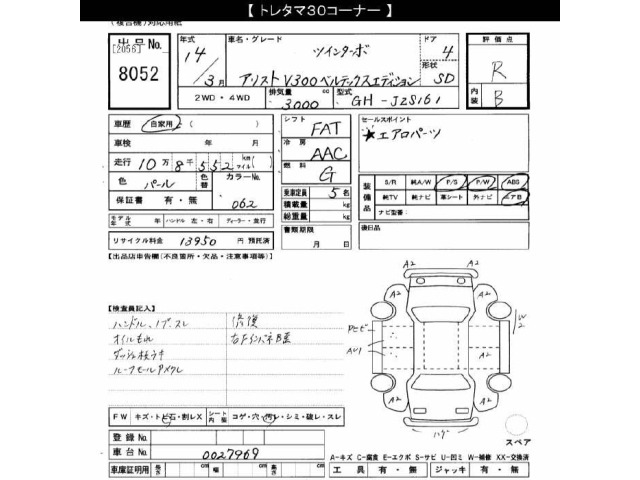 【 トレタマ30コーナー 】
(複合機)対応用紙
出品No.
[2056]
8052
年式
14/3月
車名・グレード
ツインターボ
アリストV300ベルテックスエディション
ドア
4
形状
SD
2WD・4WD
排気量
3000 cc
型式
GH-JZS161
評価点
R
内装
B
車歴
自家用
車検 年 月
走行 10万8千552 km マイル ( )
色
パール
色替
カラーNo.
062
保証書 有・無
モデル年式 年 ハンドル 左・右 ディーラー・並行
リサイクル料金 13950 円 預託済
シフト
FAT
冷房
AAC
燃料
G
乗車定員 5 名
積載量 kg
総重量 kg
書類期限
月 日
セールスポイント
★エアロパーツ
装備品
S/R 純A/W P/S P/W ABS
純TV 純ナビ 革シート 外ナビ エアB
ナビ型番:
後日品
【出品店申告欄(不良箇所・欠品・注意事項等)】
【検査員記入】
ハンドル、ノブスレ
オイルもれ
ルーフモールアメクレ
修復
FW キズ・トビ石・割レX シート内張 コゲ・穴・汚レ・シミ・破レ・スレ
登録No.
車台No. 0027969
車庫証明用 長さ cm 幅 cm 高さ cm
A2 A2
A2 A2
W2
AU1
A2
A2 A2
ハゲ
スペア
A-キズ C-腐食 E-エクボ S-サビ U-凹ミ W-補修 XX-交換済
工具 有・無 ジャッキ 有・無